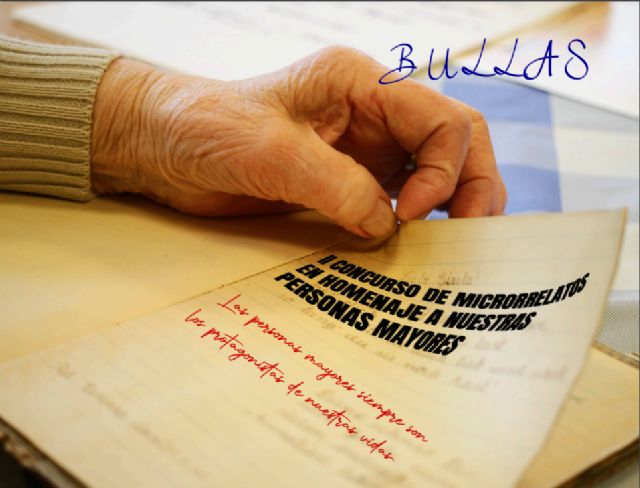 BULLAS
II CONCURSO DE MICRORRELATOS
EN HOMENAJE A NUESTRAS
PERSONAS MAYORES
Las personas mayores siempre son
los protagonistas de nuestras vidas.